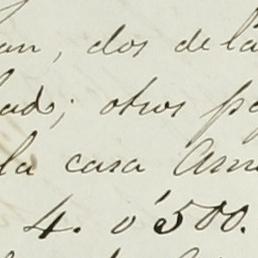 an, dos de la
lad; otros p
la casa Am
4. ó 500.